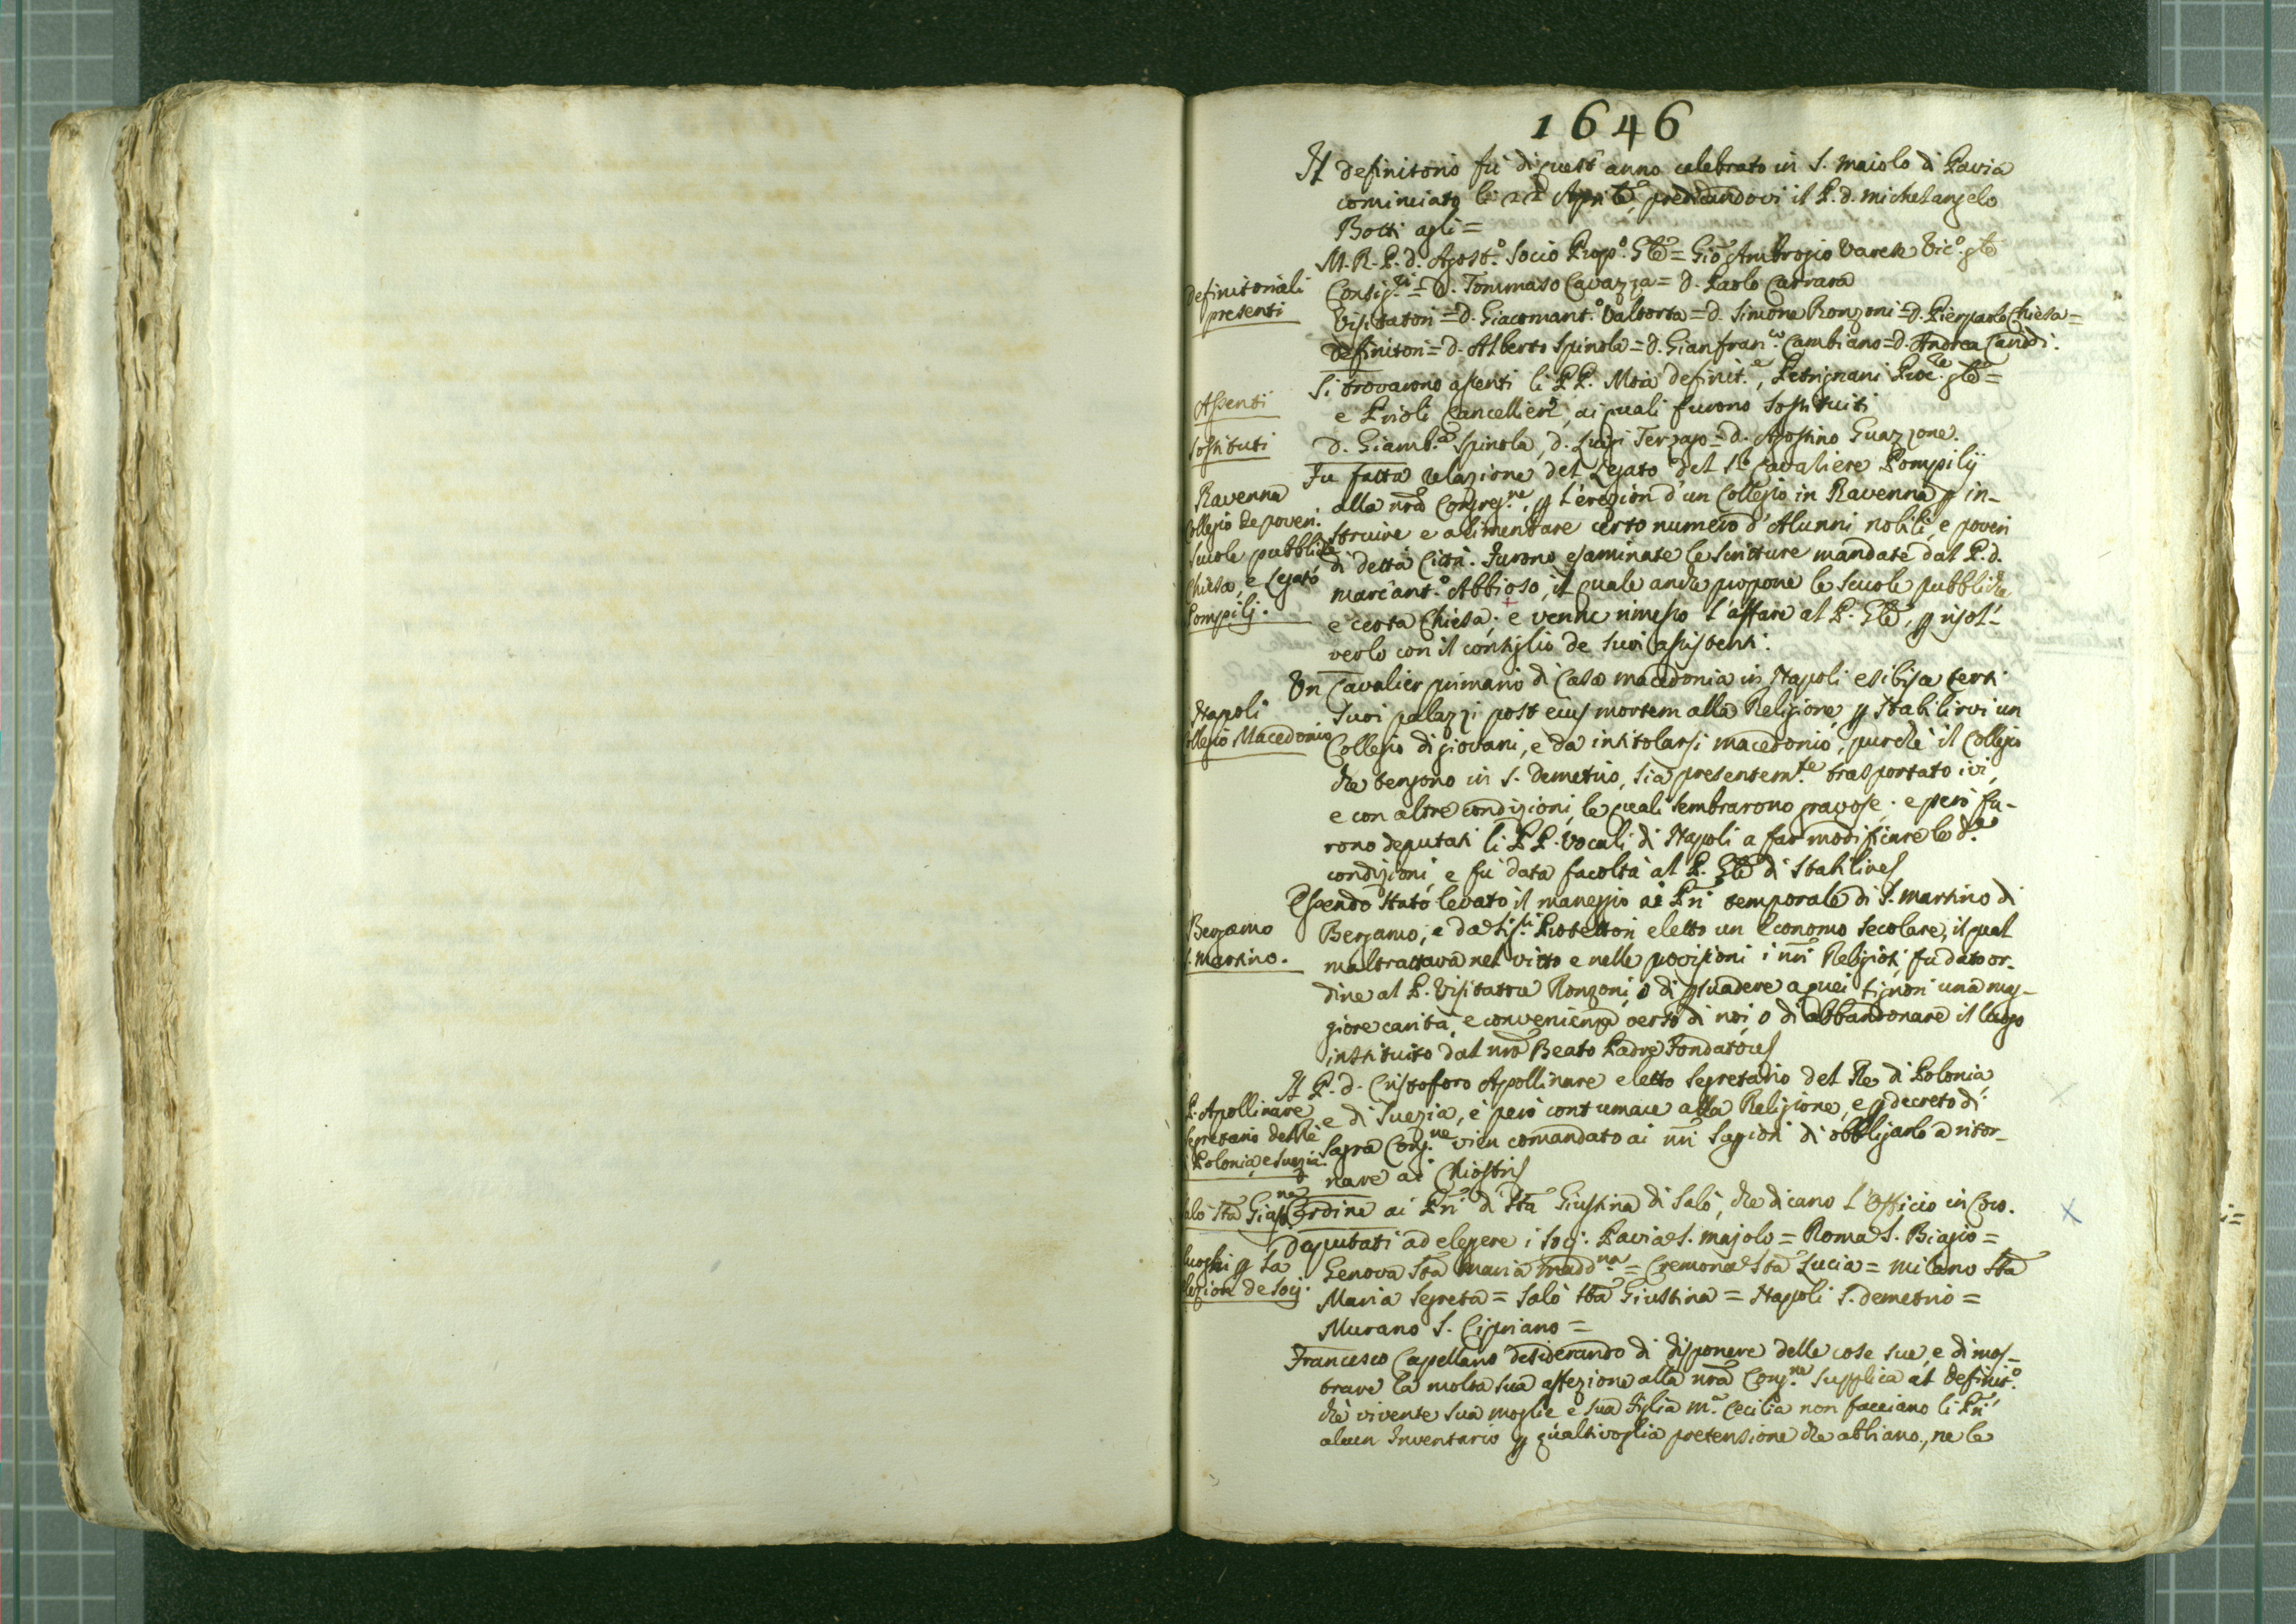 1646
Il definitorio fù di quest' anno celebrato in S. Maiolo di Pavia
cominciato li 22 Aprile, predicandovi il P. d. Michelangelo
Botti agli =
M. R. P. d. Agost.º Socio Prop.º Gle = Gio Ambrogio Varese Vic.º gle
definitoriali
presenti
Consig.ri = d. Tommaso Cavazza = d. Paolo Carrara
Visitatori = d. Giacomant.º Valtorta = d. Simone Ronzoni = d. Pierpaolo Chiesa =
definitori = d. Alberto Spinola = d. Gianfran.co Cambiano = d. Andrea
Assenti
Si trovarono assenti li PP. Moia definit.e, Petrignani Proc.re gle =
e Prioli Cancelliere, ai quali furono sostituiti
sostituti
d. Giamb.a Spinola, d. Luigi Terzago = d. Agostino Guazzone.
Ravenna
Collegio de poveri.
Scuole pubbliche
Chiesa, e Legato
Pompilj.
Fu fatta relazione del Legato del Sr Cavaliere Pompilij
alla nrã Congreg.ne, p l'erezion d'un Collegio in Ravenna p in-
struire e alimentare certo numero d'Alunni nobili, e poveri
di detta Città. Furono esaminate le scritture mandate dal P. d.
Marc'ant.º Abbioso, il quale anche propone le scuole pubbliche
e certa Chiesa; e venne rimesso l'affare al P. Gle, p risol-
verlo con il consiglio de suoi assistenti.
Napoli
Collegio Macedonio
Un Cavalier primario di Casa Macedonia in Napoli esibisce certi
suoi palazzi post ejus mortem alla Religione p stabilirvi un
Collegio di giovani, e da intitolarsi Macedonio, purchè il Collegio
che tengono in S. Demetrio, sia presentem.te trasportato ivi,
e con altre condizioni, le quali sembrarono gravose; e però fu-
rono deputati li PP. Vocali di Napoli a far modificare le d.e
condizioni, e fu data facoltà al P. Gle di stabilire
Bergamo
S. Martino.
Essendo stato levato il maneggio ai Pri temporale di S. Martino di
Bergamo, e da Sig.ri Protettori eletto un Economo secolare, il qual
maltrattava nel vitto e nelle provisioni i nri Religiosi, fu dato or-
dine al P. Visitatore Ronzoni, o di psuadere a quei Signori una mag-
giore carità, e convenienza verso di noi, o di abbandonare il luogo
instituito dal nrõ Beato Padre Fondatore
P. Apollinare
segretario del Rè
di Polonia, e Suezia.
Il P. d. Cristoforo Apollinare eletto segretario del Re di Polonia
e di Suezia, è però contumace alla Religione, e p decreto di
sagra Cong.ne vien comandato ai nri Supiori di obbligarlo a ritor-
nare ai Chiostri
Salò Sta Gias.na
Ordine ai Pri di Sta Giustina di Salò, che dicano l'Officio in Coro.
luoghi p la
elezion de Socj.
Deputati ad elegere i Socj. Pavia S. Majolo = Roma S. Biagio =
Genova Sta Maria Madd.na = Cremona Sta Lucia = Milano Sta
Maria Segreta = Salò Sta Giustina = Napoli S. Demetrio =
Murano S. Cipriano =
Francesco Capellano desiderando di disponere delle cose sue, e dimos-
trare la molta sua affezione alla nrã Cong.ne supplica al Definit.º
che vivente sua moglie e sua figlia M.a Cecilia non facciano li Pri
alcun Inventario p qualsivoglia pretensione che abbiano, ne le